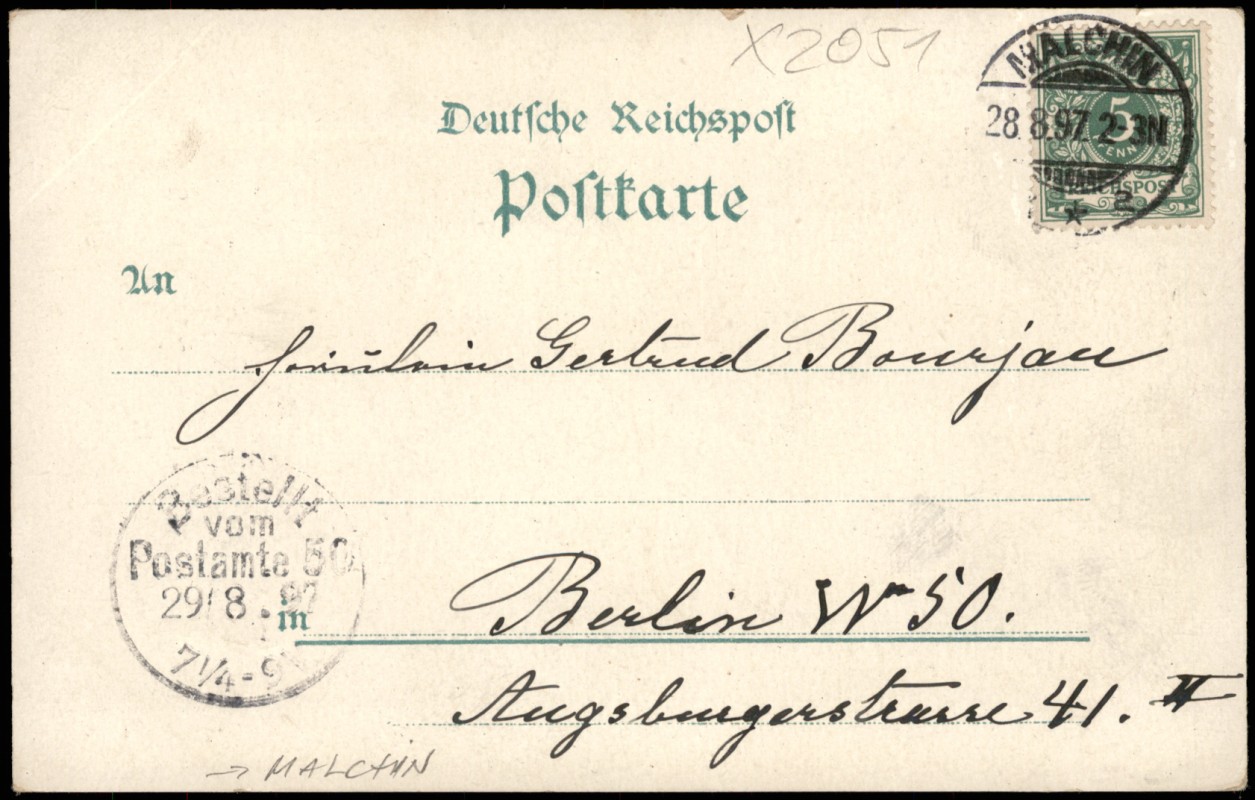 X2051
MALCHIN
28.8.97.2-3N
* 2
5
PFENNIG
REICHSPOST
Deutsche Reichspost
Postkarte
An
Fräulein Gertrud Bourjau
Bestellt
vom
Postamte 50
29/8.97
7¼-9
in Berlin W 50.
Augsburgerstrasse 41. II
→ MALCHIN